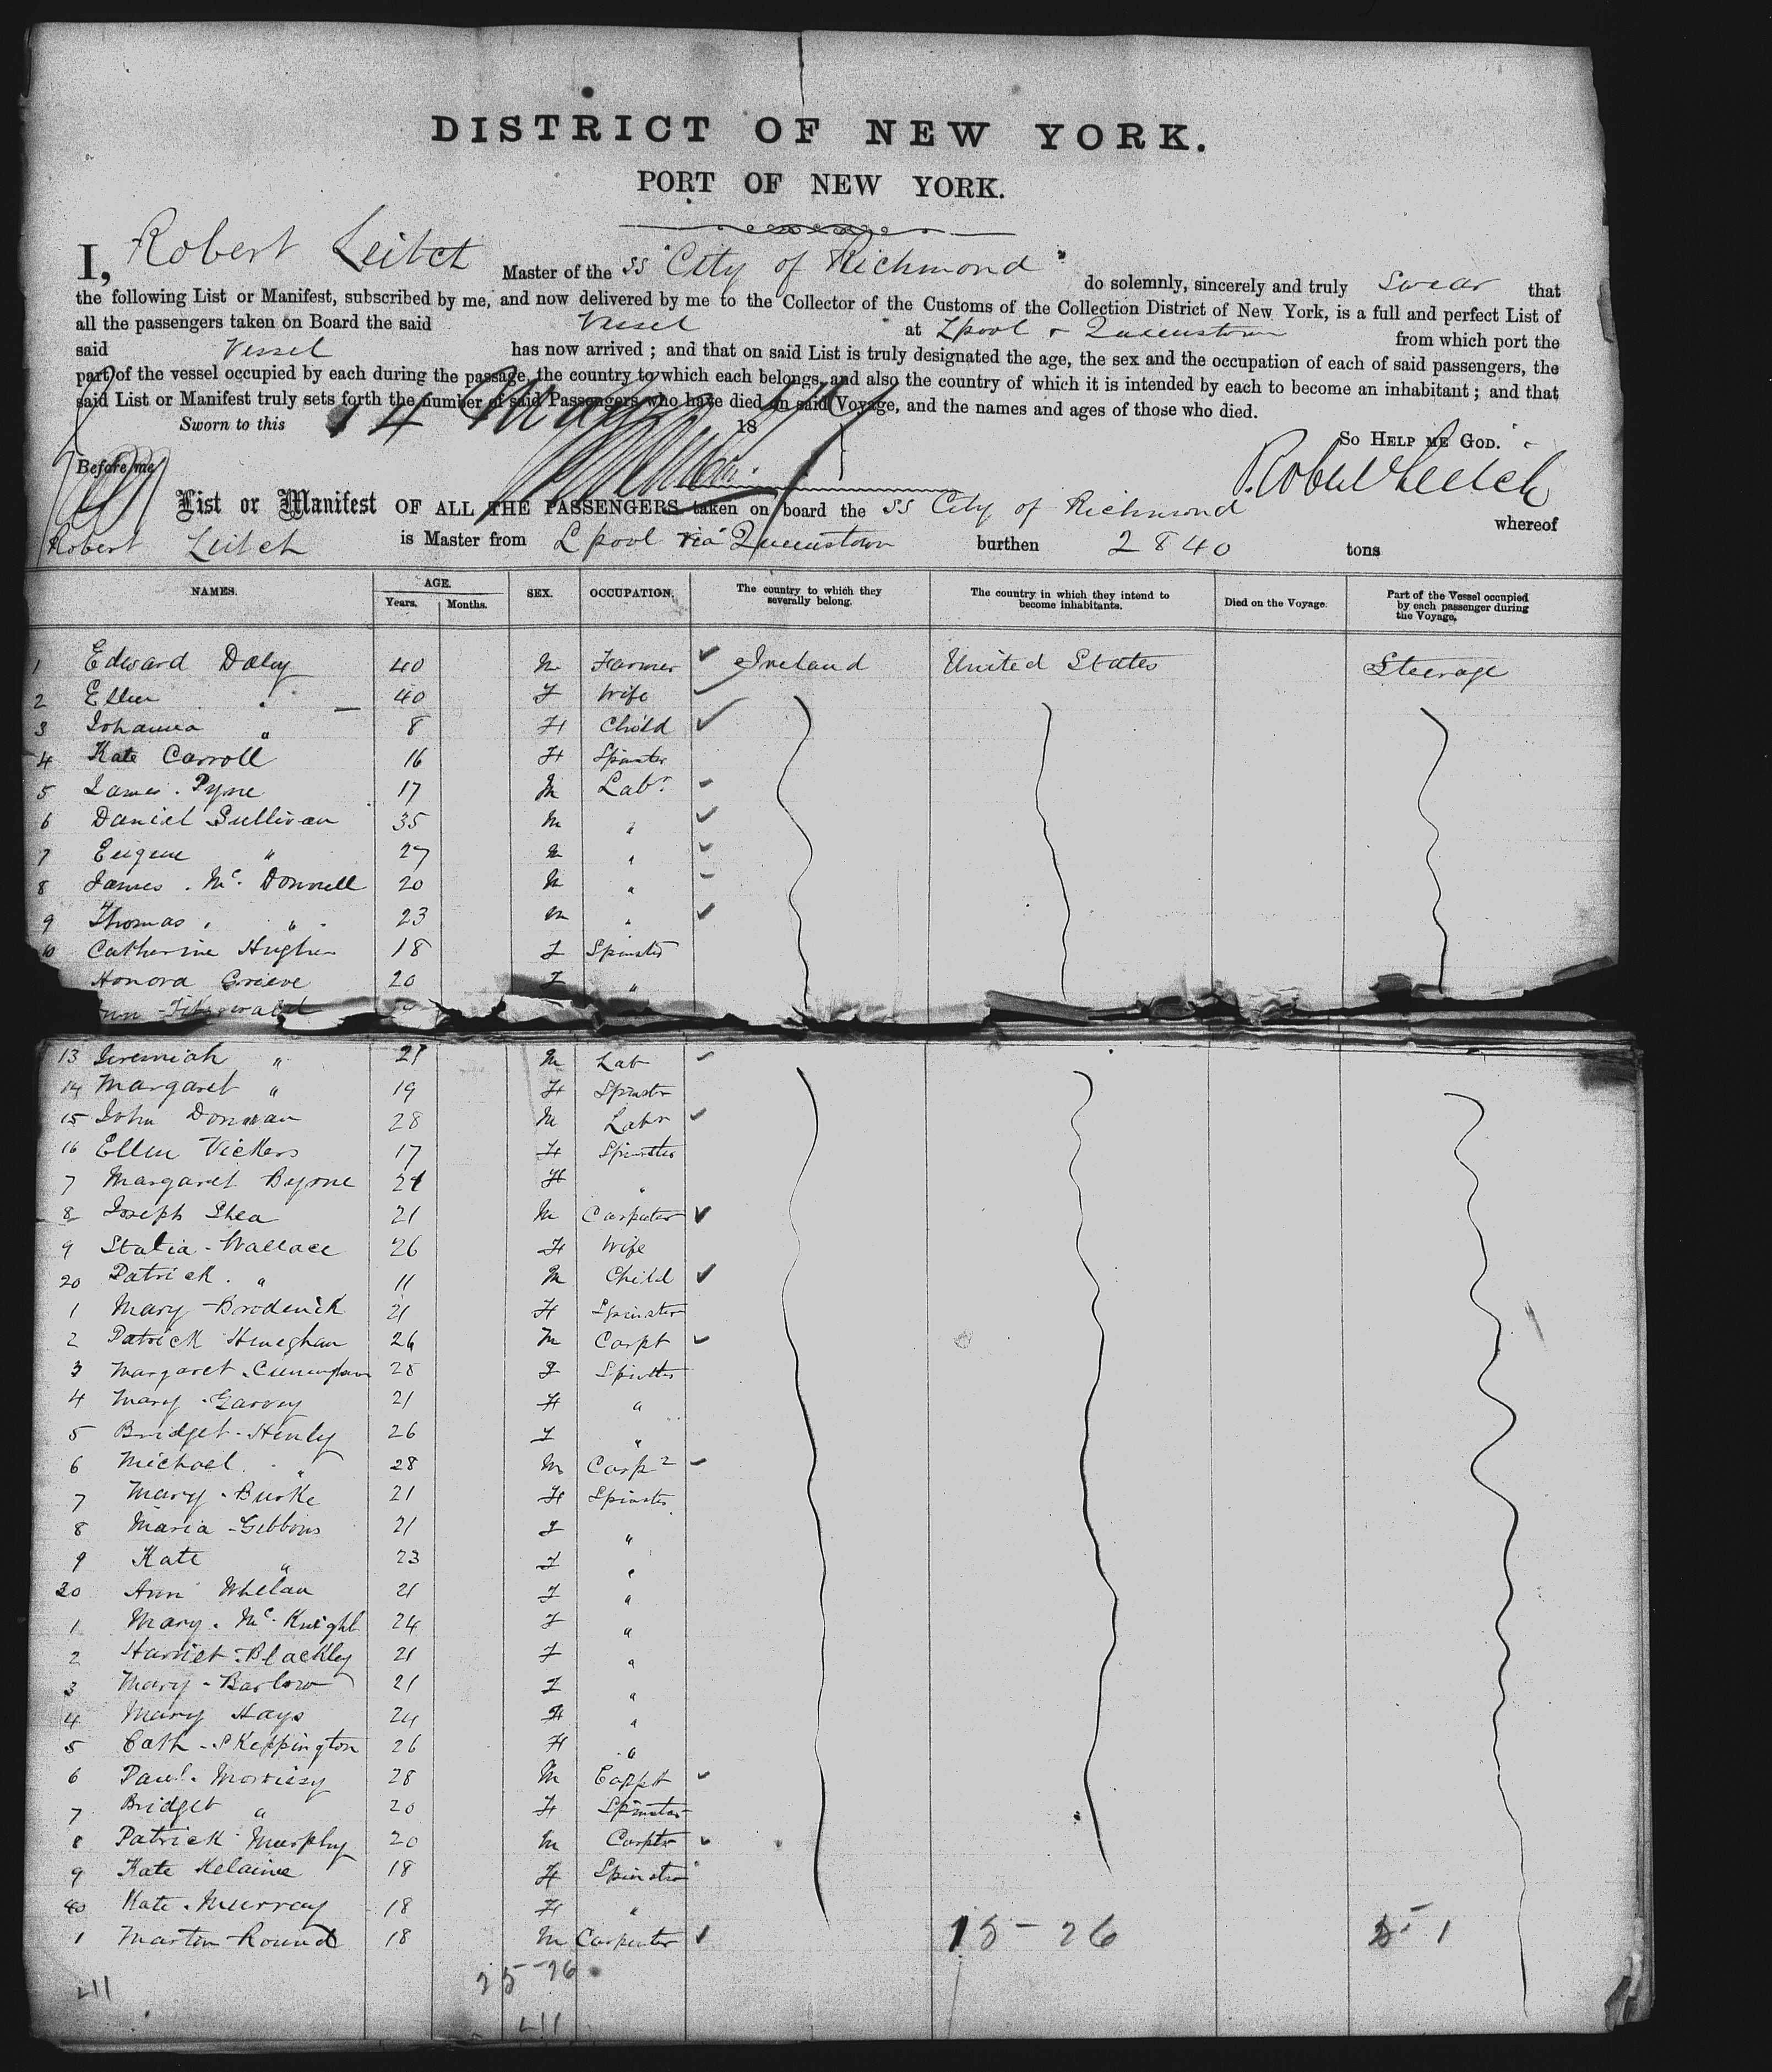 DISTRICT OF NEW YORK.
PORT OF NEW YORK.
I, Robert Leitch Master of the SS "City of Richmond" do solemnly, sincerely and truly Swear that
the following List or Manifest, subscribed by me, and now delivered by me to the Collector of the Customs of the Collection District of New York, is a full and perfect List of
all the passengers taken on Board the said Vessel at Lpool & Queenstown from which port the
said Vessel has now arrived ; and that on said List is truly designated the age, the sex and the occupation of each of said passengers, the
part of the vessel occupied by each during the passage, the country to which each belongs, and also the country of which it is intended by each to become an inhabitant ; and that
said List or Manifest truly sets forth the number of said Passengers who have died on said Voyage, and the names and ages of those who died.
Sworn to this 14 May 18
So HELP ME GOD.
Before me
Robert Leitch
List or Manifest OF ALL THE PASSENGERS taken on board the SS City of Richmond whereof
Robert Leitch is Master from Lpool via Queenstown burthen 2840 tons
NAMES. AGE. Years. Months. SEX. OCCUPATION. The country to which they severally belong. The country in which they intend to become inhabitants. Died on the Voyage. Part of the Vessel occupied by each passenger during the Voyage.
1 Edward Daly 40 M Farmer Ireland United States Steerage
2 Ellen " 40 F Wife
3 Johanna " 8 F Child
4 Kate Carroll 16 F Spinster
5 James Pyne 17 M Labr
6 Daniel Sullivan 35 M "
7 Eugene " 27 M "
8 James McDonnell 20 M "
9 Thomas " 23 M "
10 Catherine Hughes 18 F Spinster
Honora Grieve 20 F "
Fitzgerald
13 Jeremiah " 21 M Lab
14 Margaret " 19 F Spinster
15 John Donovan 28 M Labr
16 Ellen Vickers 17 F Spinster
7 Margaret Byrne 21 F "
8 Joseph Shea 21 M Carpenter
9 Statia Wallace 26 F Wife
20 Patrick " 11 M Child
1 Mary Broderick 21 F Spinster
2 Patrick Heneghan 26 M Carpt
3 Margaret Cunningham 28 F Spinster
4 Mary Garvey 21 F "
5 Bridget Henly 26 F "
6 Michael " 28 M Carpr
7 Mary Burke 21 F Spinster
8 Maria Gibbons 21 F "
9 Kate " 23 F "
30 Ann Whelan 21 F "
1 Mary McKnight 24 F "
2 Harriet Blackley 21 F "
3 Mary Barlow 21 F "
4 Mary Hays 24 F "
5 Cath Skeppington 26 F "
6 Morrissy 28 M Carpt
7 Bridget " 20 F Spinster
8 Patrick Murphy 20 M Carptr
9 Kate 18 F Spinster
40 Kate Murray 18 F "
1 Martin Round 18 M Carpenter
15 - 26